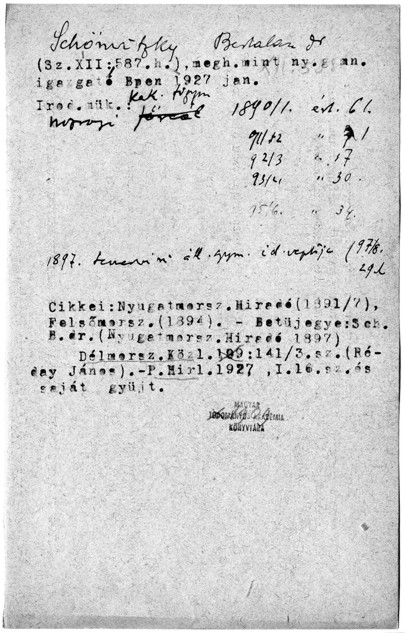 Schönvitzky Bertalan dr
(Sz.XII:587.h.),megh.mint ny.gimn.
igazgató Bpen 1927 jan.
Irod.mük.: kak. főgym
1890/1. ért. 61.
91/92 " 1
92/3 " 17
93/4 " 30.
95/6. " 34.
1897. temesvári áll. gym. id. (97/8.
29.l
Cikkei:Nyugatmorsz.Hiradó(1891/7),
Felsőmorsz.(1894). - Betüjegye:Sch.
B.dr.(Nyugatmorsz.Hiradó 1897)
Délmorsz.Közl. :141/3.sz.(Ré-
day János).-P.Hirl.1927 ,I.16.sz.és
saját gyüjt.
MAGYAR
TUDOMÁNYOS AKADÉMIA
KÖNYVTÁRA